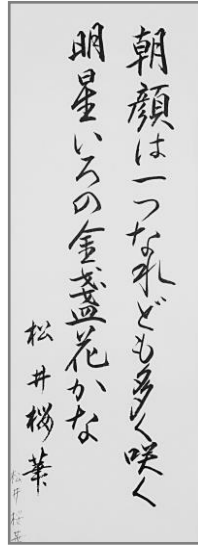 朝顔は一つなれども多く咲く
明星いろの金盞花かな
松井桜華
松井桜華